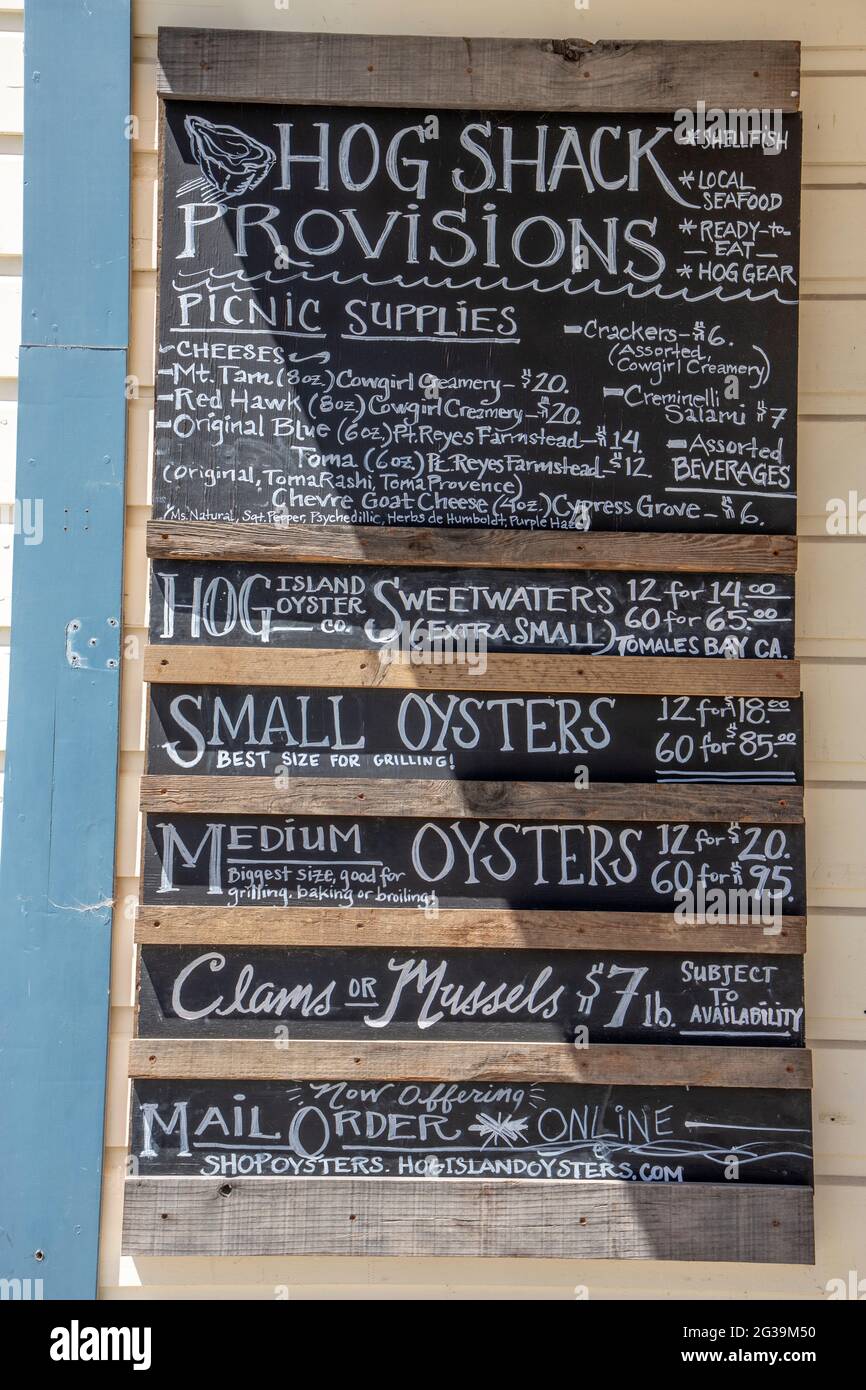 HOG SHACK
PROVISIONS
* SHELLFISH
* LOCAL
SEAFOOD
* READY-to-
EAT
* HOG GEAR
PICNIC SUPPLIES
CHEESES
-Mt. Tam (8oz) Cowgirl Creamery-$20.
-Red Hawk (8oz) Cowgirl Creamery-$20.
-Original Blue (6oz.) Pt. Reyes Farmstead-$14.
Toma (6oz.) Pt. Reyes Farmstead-$12.
(Original, TomaRashi, Toma Provence)
Chevre Goat Cheese (4oz.) Cypress Grove-$6.
(Ms. Natural, Sgt. Pepper, Psychedillic, Herbs de Humboldt, Purple Haze)
-Crackers-$6.
(Assorted,
Cowgirl Creamery)
-Creminelli
Salami $7
-Assorted
BEVERAGES
HOG ISLAND
OYSTER
CO.
SWEETWATERS
(EXTRA SMALL)
12 for 14.00
60 for 65.00
TOMALES BAY CA.
SMALL OYSTERS
BEST SIZE FOR GRILLING!
12 for $18.00
60 for $85.00
MEDIUM OYSTERS
Biggest size, good for
grilling, baking or broiling!
12 for $20.
60 for $95.
Clams OR Mussels $7 lb.
SUBJECT
TO
AVAILABILITY
Now Offering
MAIL ORDER ONLINE
SHOPOYSTERS.HOGISLANDOYSTERS.COM
alamy
Image ID: 2G39M50
www.alamy.com